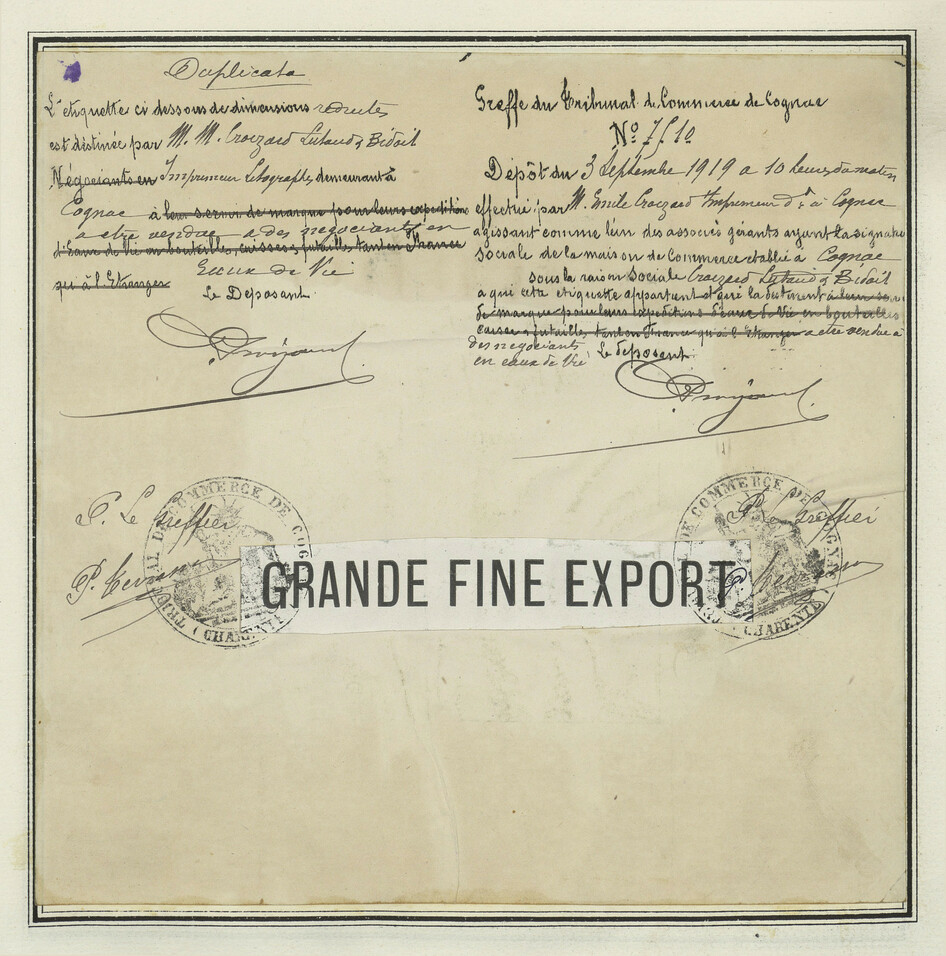 Duplicata
L'etiquette ci dessous de dimensions reduites
est destinée par M. M. Croizard Lutaud & Bidoit
Négociants en Imprimeur Litographes demeurant à
Cognac à leur servir de marque pour leurs expéditions
a etre vendue a des negociants en
d'Eaux de Vie en bouteilles, caisses, futailles tant en France
Eaux de Vie
qu'à l'Etranger
Le Déposant
P. Le Greffier
Greffe du Tribunal de Commerce de Cognac
Nº 7510
Dépôt du 3 Septembre 1919 a 10 heures du matin
effectué par M. Emile Croizard Imprimeur à Cognac
agissant comme l'un des associés gérants ayant la signature
sociale de la maison de Commerce établie à Cognac
sous la raison sociale Croizard Lutaud & Bidoit
a qui cette etiquette appartient et qui la destinent à leur servir
de marque pour leurs expéditions d'eaux de Vie en bouteilles
caisses futailles, tant en France qu'à l'Etranger a etre vendue a
des negociants
en eaux de Vie Le déposant
P. Le Greffier
TRIBUNAL DE COMMERCE DE COGNAC
(CHARENTE)
GRANDE FINE EXPORT
TRIBUNAL DE COMMERCE DE COGNAC
(CHARENTE)